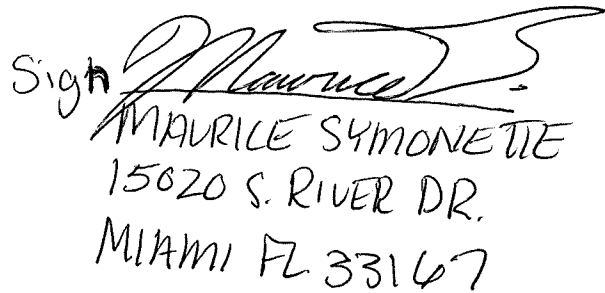 Sign Maurice S.
MAURICE SYMONETTE
15020 S. RIVER DR.
MIAMI FL 33167